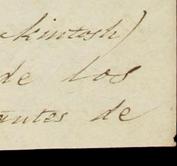 ckintosh)
de los
antes de